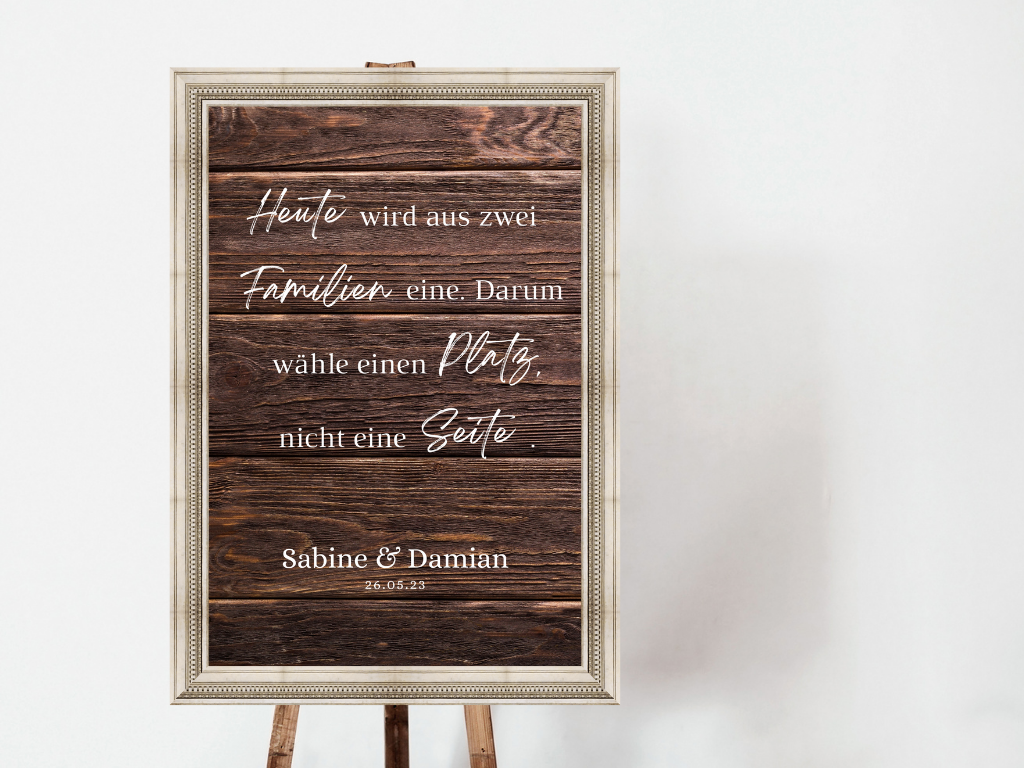 Heute wird aus zwei
Familien eine. Darum
wähle einen Platz,
nicht eine Seite .
Sabine & Damian
26.05.23